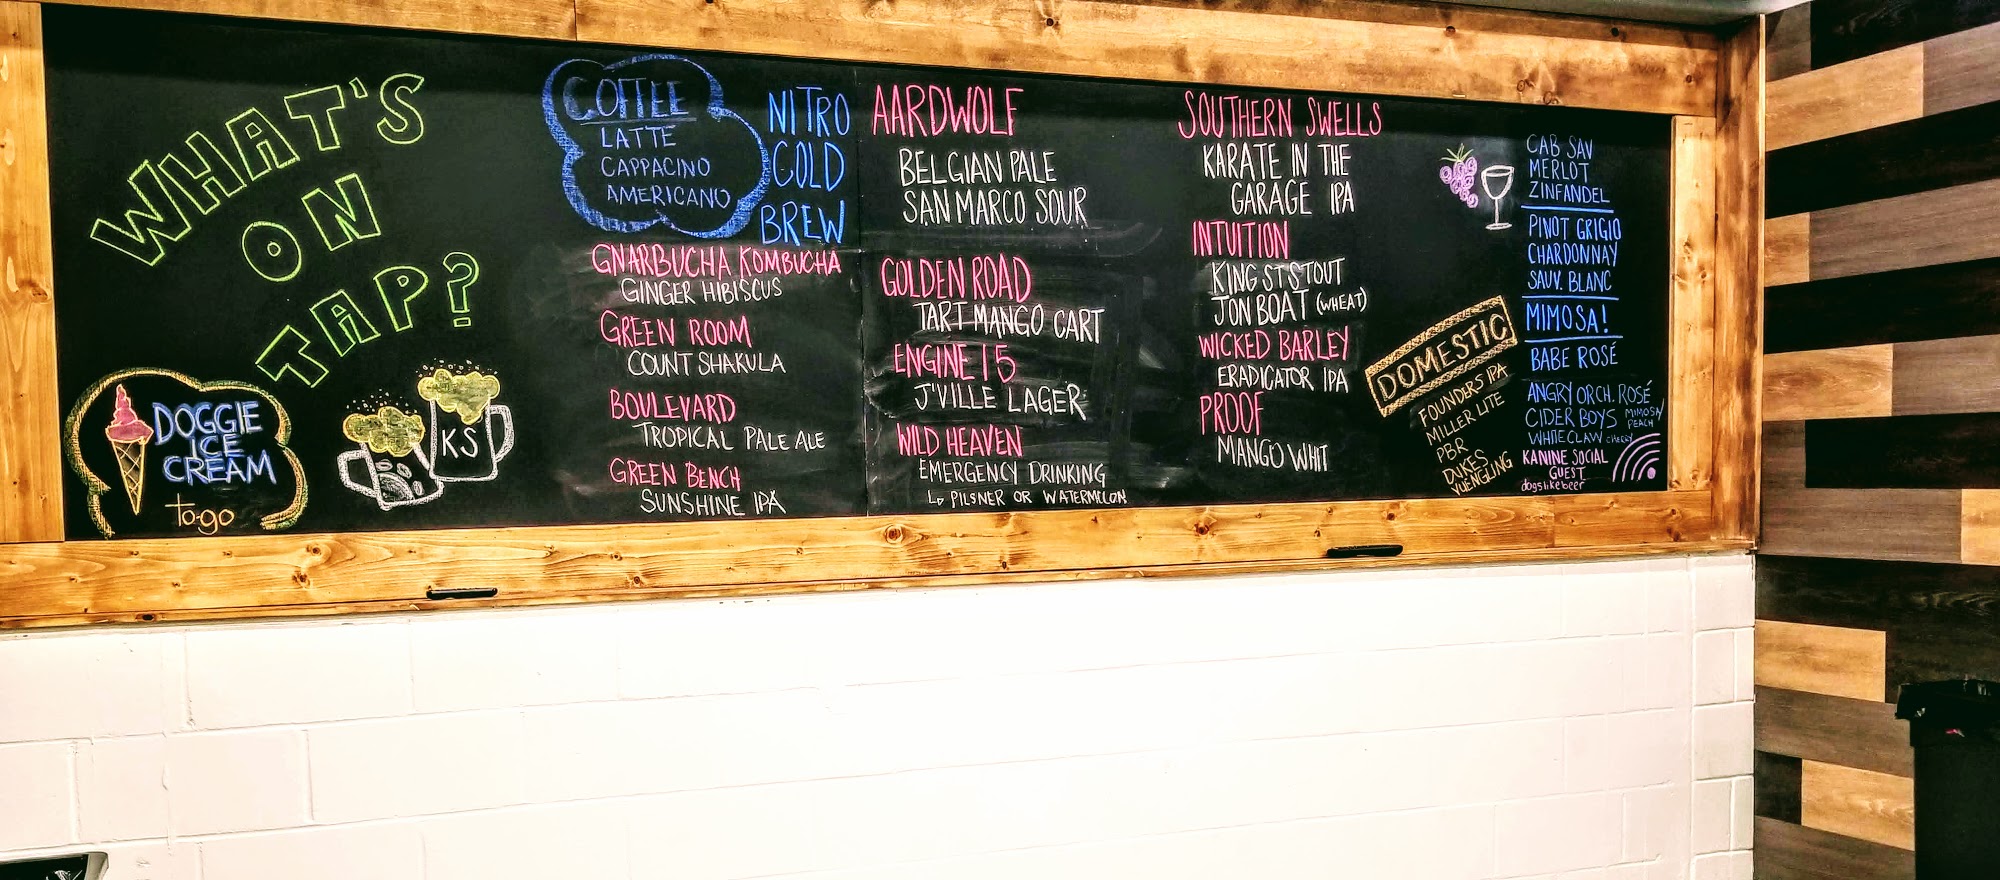 WHAT'S
ON
TAP?
DOGGIE
ICE
CREAM
to-go
KS
COFFEE
LATTE
CAPPACINO
AMERICANO
NITRO
COLD
BREW
GNARBUCHA KOMBUCHA
GINGER HIBISCUS
GREEN ROOM
COUNT SHAKULA
BOULEVARD
TROPICAL PALE ALE
GREEN BENCH
SUNSHINE IPA
AARDWOLF
BELGIAN PALE
SAN MARCO SOUR
GOLDEN ROAD
TART MANGO CART
ENGINE 15
J'VILLE LAGER
WILD HEAVEN
EMERGENCY DRINKING
PILSNER OR WATERMELON
SOUTHERN SWELLS
KARATE IN THE
GARAGE IPA
INTUITION
KING ST STOUT
JON BOAT (WHEAT)
WICKED BARLEY
ERADICATOR IPA
PROOF
MANGO WHIT
DOMESTIC
FOUNDERS IPA
MILLER LITE
PBR
DUKES
YUENGLING
CAB SAV
MERLOT
ZINFANDEL
PINOT GRIGIO
CHARDONNAY
SAUV. BLANC
MIMOSA!
BABE ROSÉ
ANGRY ORCH. ROSÉ
CIDER BOYS MIMOSA/
PEACH
WHITECLAW CHERRY
KANINE SOCIAL
GUEST
dogslikebeer